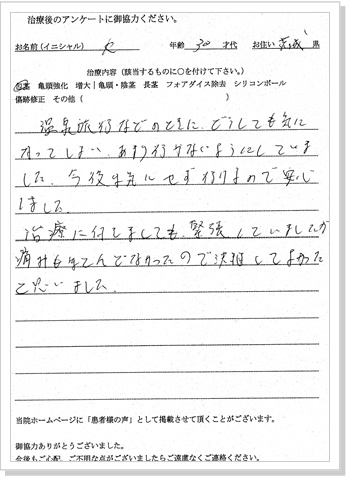 治療後のアンケートに御協力ください。
お名前(イニシャル) K 年齢 30 才代 お住い 茨城 県
治療内容(該当するものに○を付けて下さい。)
包茎 亀頭強化 増大|亀頭・陰茎 長茎 フォアダイス除去 シリコンボール
傷跡修正 その他( )
温泉旅行などのときに、どうしても気に
なってしまい、あまり行かないようにしていま
した。今後は気にせず行けるので安心
しました。
治療に付きましても、緊張していましたが
痛みもほとんどなかったので決断してよかった
と思いました。
当院ホームページに「患者様の声」として掲載させて頂くことがございます。
御協力ありがとうございました。
今後もご心配、ご不明な点がございましたらご遠慮なくご連絡ください。